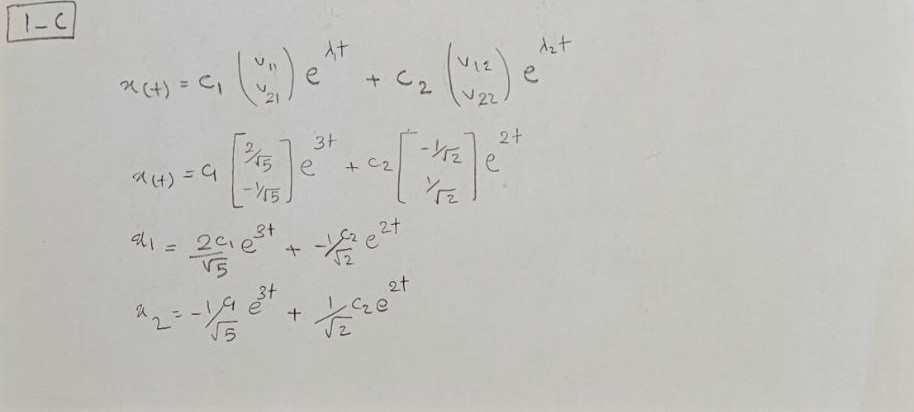 1-C
x(t) = c₁ (v₁₁ v₂₁) e^{λ₁t} + c₂ (v₁₂ v₂₂) e^{λ₂t}
x(t) = c₁ [2/√5 -1/√5] e^{3t} + c₂ [-1/√2 1/√2] e^{2t}
x₁ = 2c₁/√5 e^{3t} + -1/√2 c₂ e^{2t}
x₂ = -1/√5 c₁ e^{3t} + 1/√2 c₂ e^{2t}